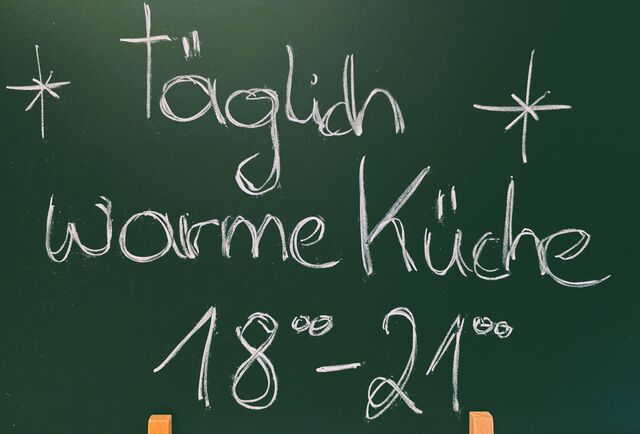 Täglich
warme Küche
18⁰⁰ - 21⁰⁰